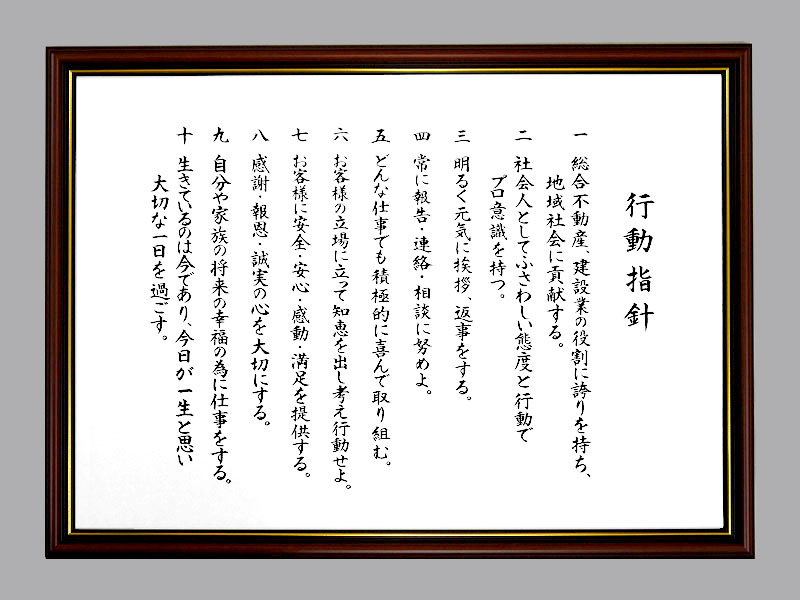 行動指針
一 総合不動産、建設業の役割に誇りを持ち、
地域社会に貢献する。
二 社会人としてふさわしい態度と行動で
プロ意識を持つ。
三 明るく元気に挨拶、返事をする。
四 常に報告・連絡・相談に努めよ。
五 どんな仕事でも積極的に喜んで取り組む。
六 お客様の立場に立って知恵を出し考え行動せよ。
七 お客様に安全・安心・感動・満足を提供する。
八 感謝・報恩・誠実の心を大切にする。
九 自分や家族の将来の幸福の為に仕事をする。
十 生きているのは今であり、今日が一生と思い
大切な一日を過ごす。